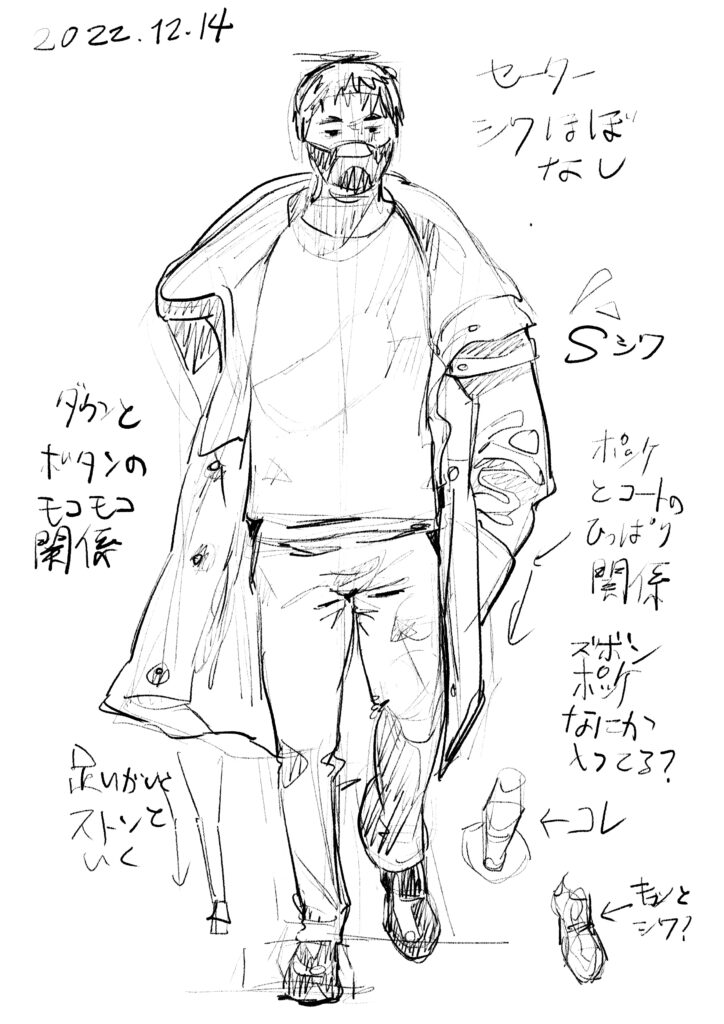 2022.12.14
セーター
シワほぼ
なし
Sシワ
ダウンと
ボタンの
モコモコ
関係
ポッケ
とコートの
ひっぱり
関係
ズボン
ポッケ
なにか
入ってる?
足いがいと
ストンと
いく
←コレ
←キュッと
シワ?